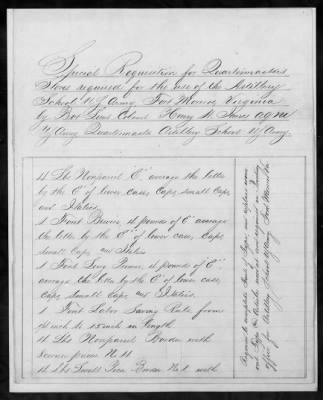 Special Requisition for Quartermasters
Stores required for the use of the Artillery
School U.S. Army, Fort Monroe, Virginia
by Bvt Lieut Colonel Henry
U.S. Army Quartermaster Artillery School U.S. Army.
4 Lbs Nonpareil "C" average the letter
by the "C" of lower case, Caps, small Caps
and Italics.
1 Font Brevier, 4 pounds of "C" average
the letter by the "C" of lower case, Caps
small Caps and Italics
1 Font Long Primer, 4 pounds of "C",
average the letter by the "C" of lower case,
Caps, Small Caps and Italics.
1 Font Labor Saving Rule from
inch to 15 inch in length
4 Lbs Nonpareil Border with
Corner piece No 11
4 Lbs Small Pica Border No 1 with
Required to complete Fonts of Type and replace worn
out Type, the Articles
Office for Artillery School U.S. Army, Fort Monroe Va.